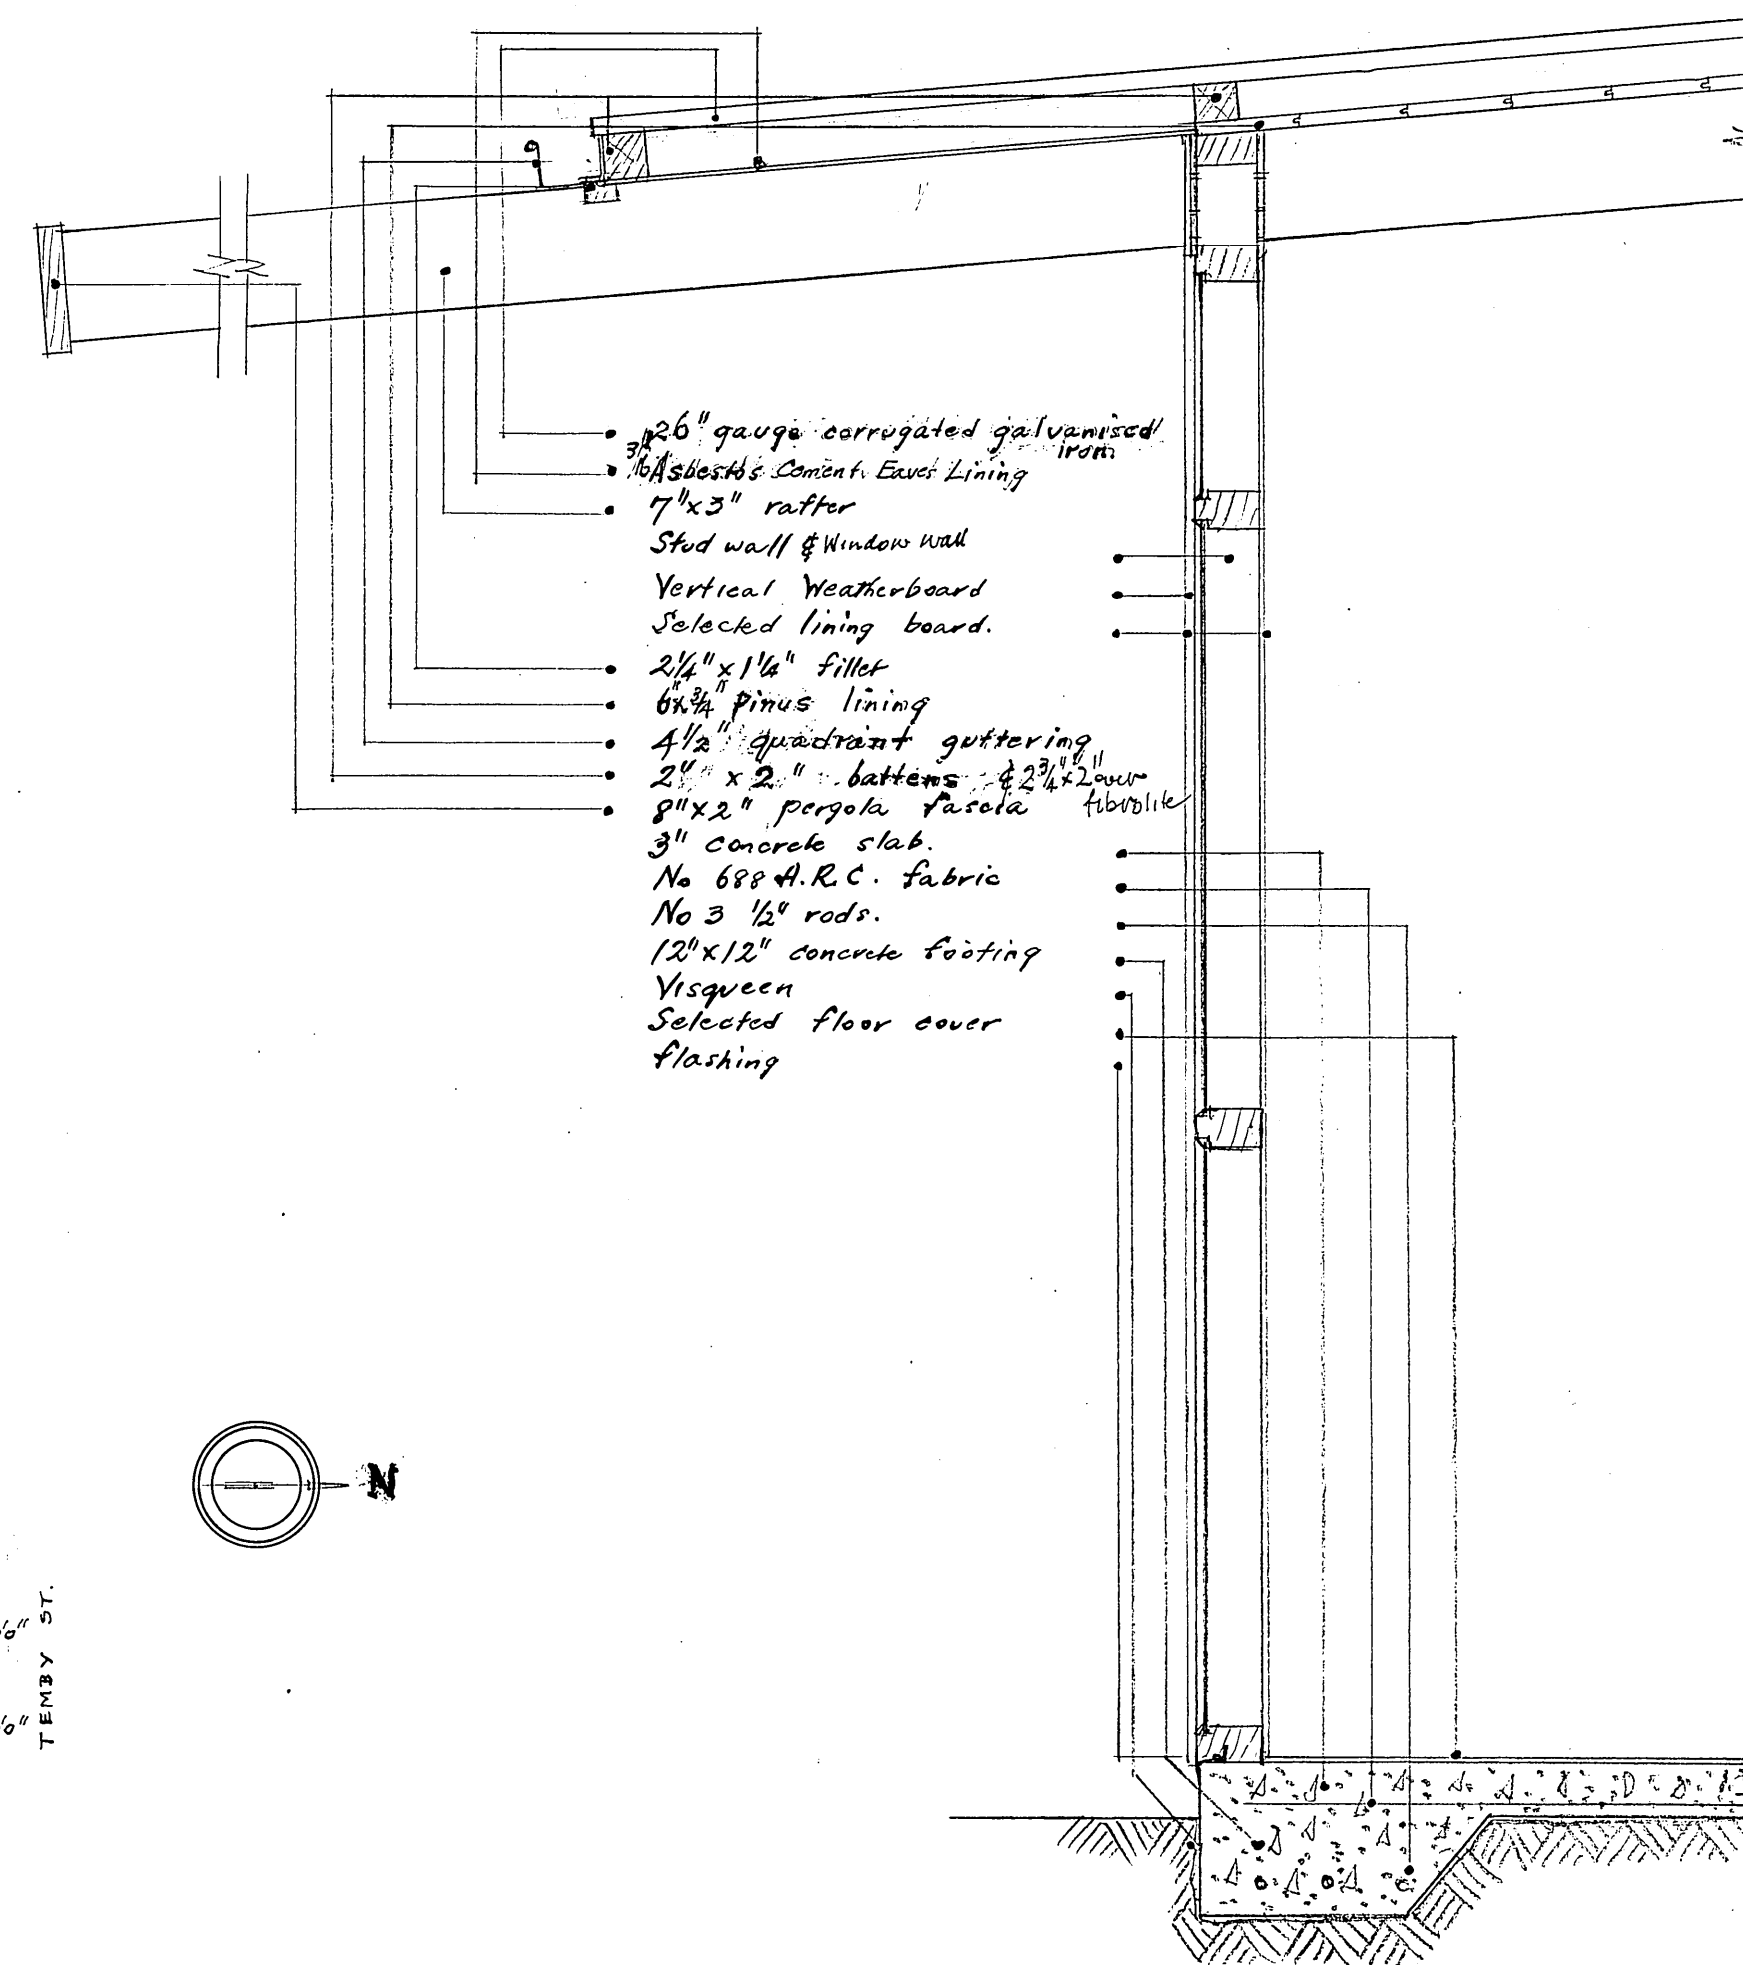 26" gauge corrugated galvanised
iron
3/16" Asbestos Cement Eaves Lining
7"x3" rafter
Stud wall & Window wall
Vertical Weatherboard
Selected lining board.
2¼"x1¼" fillet
6"x¾" Pinus lining
4½" quadrant guttering
2" x 2" battens & 2¾"x2" over
fibrolite
8"x2" pergola fascia
3" concrete slab.
No 688 A.R.C. fabric
No 3 ½" rods.
12"x12" concrete footing
Visqueen
Selected floor cover
flashing
N
TEMBY ST.